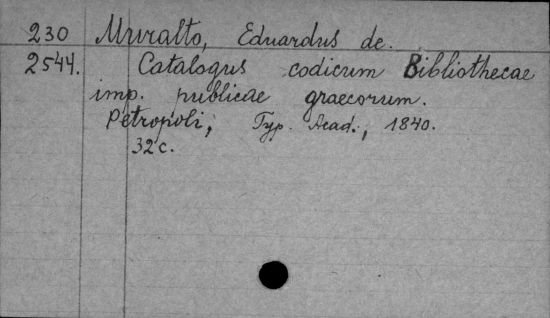 230 Muralto, Eduardus de.
2544. Catalogus codicum Bibliothecae
imp. publicae graecorum.
Petropoli, Typ. Acad., 1840.
32 c.